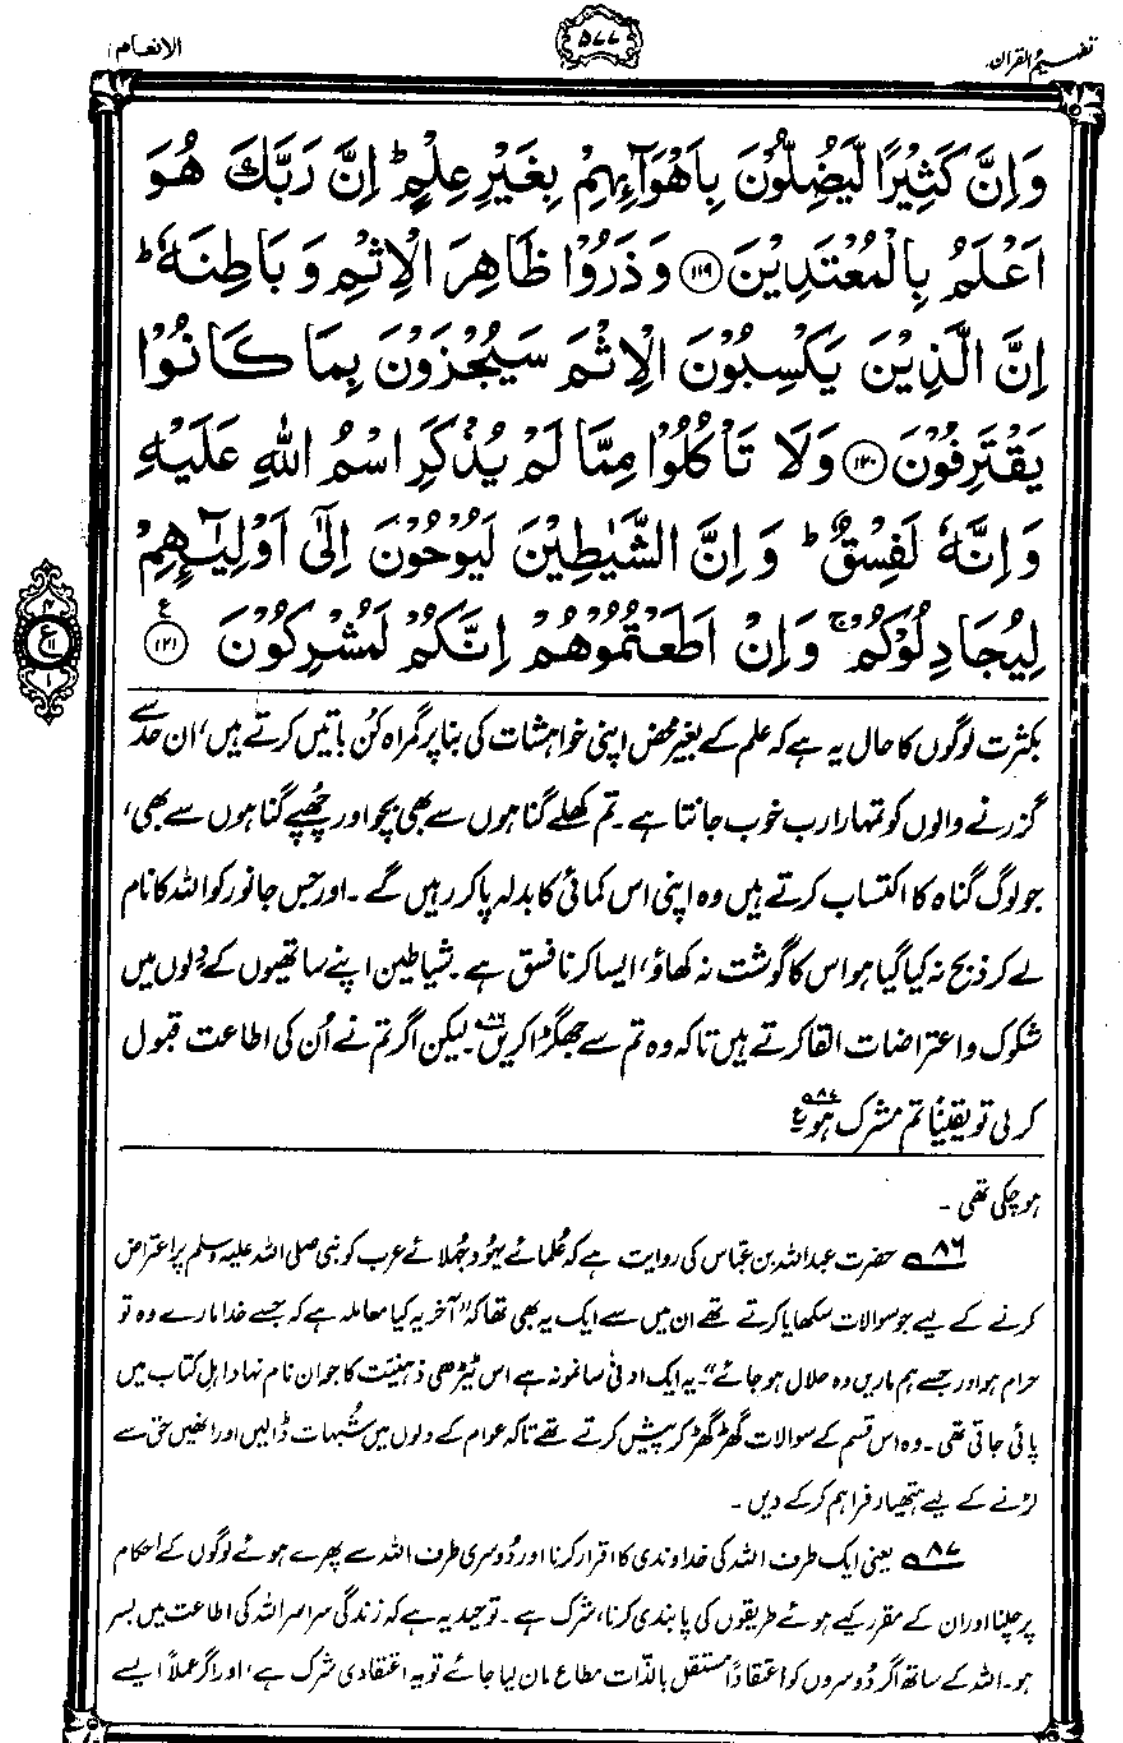 تفہیم القرآن
۵۷۷
الانعام ۶
وَاِنَّ كَثِيْرًا لَّيُضِلُّوْنَ بِاَهْوَآىِٕهِمْ بِغَيْرِ عِلْمٍ ؕ اِنَّ رَبَّكَ هُوَ
اَعْلَمُ بِالْمُعْتَدِيْنَ ﴿۱۱۹﴾ وَذَرُوْا ظَاهِرَ الْاِثْمِ وَبَاطِنَهٗ ؕ
اِنَّ الَّذِيْنَ يَكْسِبُوْنَ الْاِثْمَ سَيُجْزَوْنَ بِمَا كَانُوْا
يَقْتَرِفُوْنَ ﴿۱۲۰﴾ وَلَا تَاْكُلُوْا مِمَّا لَمْ يُذْكَرِ اسْمُ اللّٰهِ عَلَيْهِ
وَاِنَّهٗ لَفِسْقٌ ؕ وَاِنَّ الشَّيٰطِيْنَ لَيُوْحُوْنَ اِلٰٓى اَوْلِيٰٓـِٕهِمْ
لِيُجَادِلُوْكُمْ ۚ وَاِنْ اَطَعْتُمُوْهُمْ اِنَّكُمْ لَمُشْرِكُوْنَ ﴿۱۲۱﴾ ع
بکثرت لوگوں کا حال یہ ہے کہ علم کے بغیر محض اپنی خواہشات کی بنا پر گمراہ کُن باتیں کرتے ہیں، ان حد سے
گزرنے والوں کو تمہارا رب خوب جانتا ہے۔ تم کھلے گناہوں سے بھی بچو اور چُھپے گناہوں سے بھی،
جو لوگ گناہ کا اکتساب کرتے ہیں وہ اپنی اس کمائی کا بدلہ پا کر رہیں گے۔ اور جس جانور کو اللہ کا نام
لے کر ذبح نہ کیا گیا ہو اس کا گوشت نہ کھاؤ، ایسا کرنا فسق ہے۔ شیاطین اپنے ساتھیوں کے دِلوں میں
شکوک و اعتراضات القا کرتے ہیں تاکہ وہ تم سے جھگڑا کریں۸۶۔ لیکن اگر تم نے اُن کی اطاعت قبول
کر لی تو یقیناً تم مشرک ہو۸۷ ع
ہو چکی تھی۔
۸۶ حضرت عبداللہ بن عباس کی روایت ہے کہ عُلمائے یہود جُہلائے عرب کو نبی صلی اللہ علیہ وسلم پر اعتراض
کرنے کے لیے جو سوالات سکھایا کرتے تھے ان میں سے ایک یہ بھی تھا کہ "آخر یہ کیا معاملہ ہے کہ جسے خدا مارے وہ تو
حرام ہو اور جسے ہم ماریں وہ حلال ہو جائے"۔ یہ ایک ادنیٰ سا نمونہ ہے اس ٹیڑھی ذہنیت کا جو ان نام نہاد اہلِ کتاب میں
پائی جاتی تھی۔ وہ اس قسم کے سوالات گھڑ گھڑ کر پیش کرتے تھے تاکہ عوام کے دلوں میں شُبہات ڈالیں اور انھیں حق سے
لڑنے کے لیے ہتھیار فراہم کر کے دیں۔
۸۷ یعنی ایک طرف اللہ کی خداوندی کا اقرار کرنا اور دُوسری طرف اللہ سے پھرے ہوئے لوگوں کے احکام
پر چلنا اور ان کے مقرر کیے ہوئے طریقوں کی پابندی کرنا، شرک ہے۔ توحید یہ ہے کہ زندگی سراسر اللہ کی اطاعت میں بسر
ہو۔ اللہ کے ساتھ اگر دُوسروں کو اعتقاداً مستقل بالذات مطاع مان لیا جائے تو یہ اعتقادی شرک ہے، اور اگر عملاً ایسے